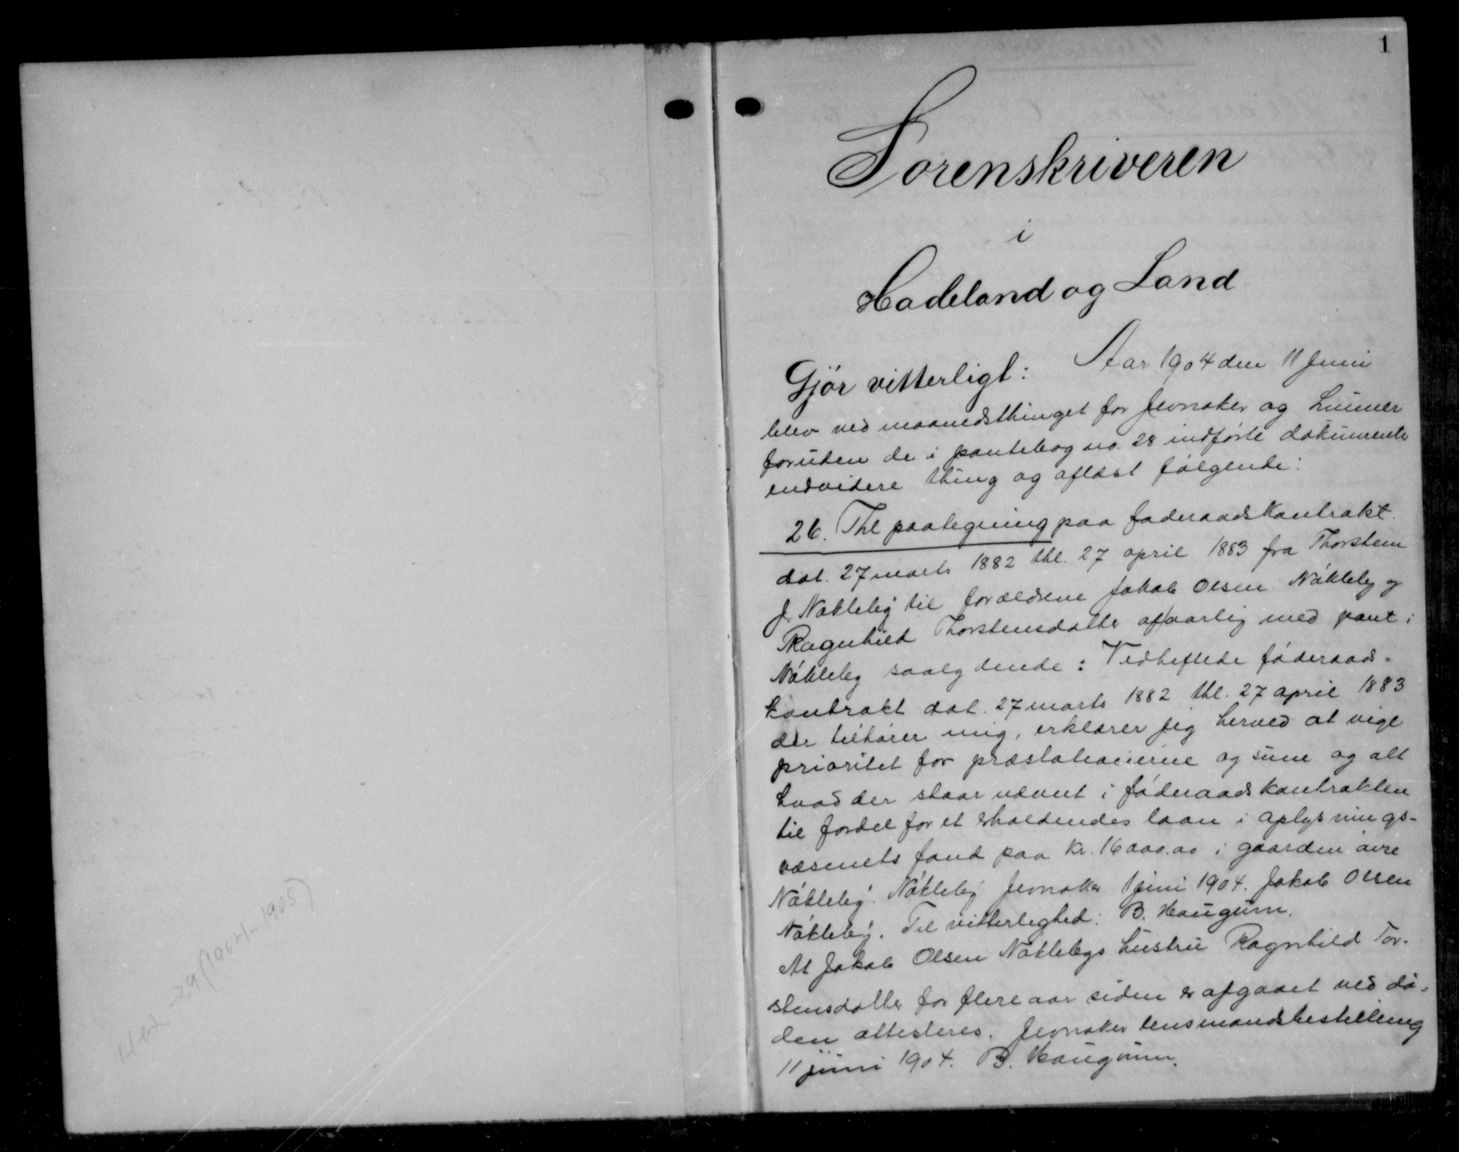 1
Sorenskriveren
i
Hadeland og Land
Gjör vitterligt: Aar 1904 den 11 Juni
blev ved maanedsthinget for Jevnaker og Lunner
foruden de i pantebog no. 28 indförte dokumenter
endvidere thing og aflæst fölgende:
26. Thl paategning paa föderaadskontrakt.
dat. 27 marts 1882 thl. 27 april 1883 fra Thorsten
J. Nökleby til forældrene Jakob Olsen Nökleby og
Ragnhild Thorstensdatter afaarlig med pant i
Nökleby saalydende: Vedheftede föderaads-
kontrakt dat. 27 marts 1882 thl. 27 april 1883
der tilhörer mig, erklærer jeg herved at vige
prioritet for præstationerne og sine og alt
hvad der staar nævnt i föderaadskontrakten
til fordel for et erholdendes laan i oplysnings-
væsenets fond paa kr. 16000.00 i gaarden övre
Nökleby. Nökleby Jevnaker 1 juni 1904. Jakob Olsen
Nökleby. Til vitterlighed: B. Haugerm.
At Jakob Olsen Nöklebys hustru Ragnhild Tor-
stensdatter for flere aar siden er afgaaet ved dö-
den attesteres. Jevnaker lensmandsbestilling
11 juni 1904. B. Haugrim.
29 (1904-1905)